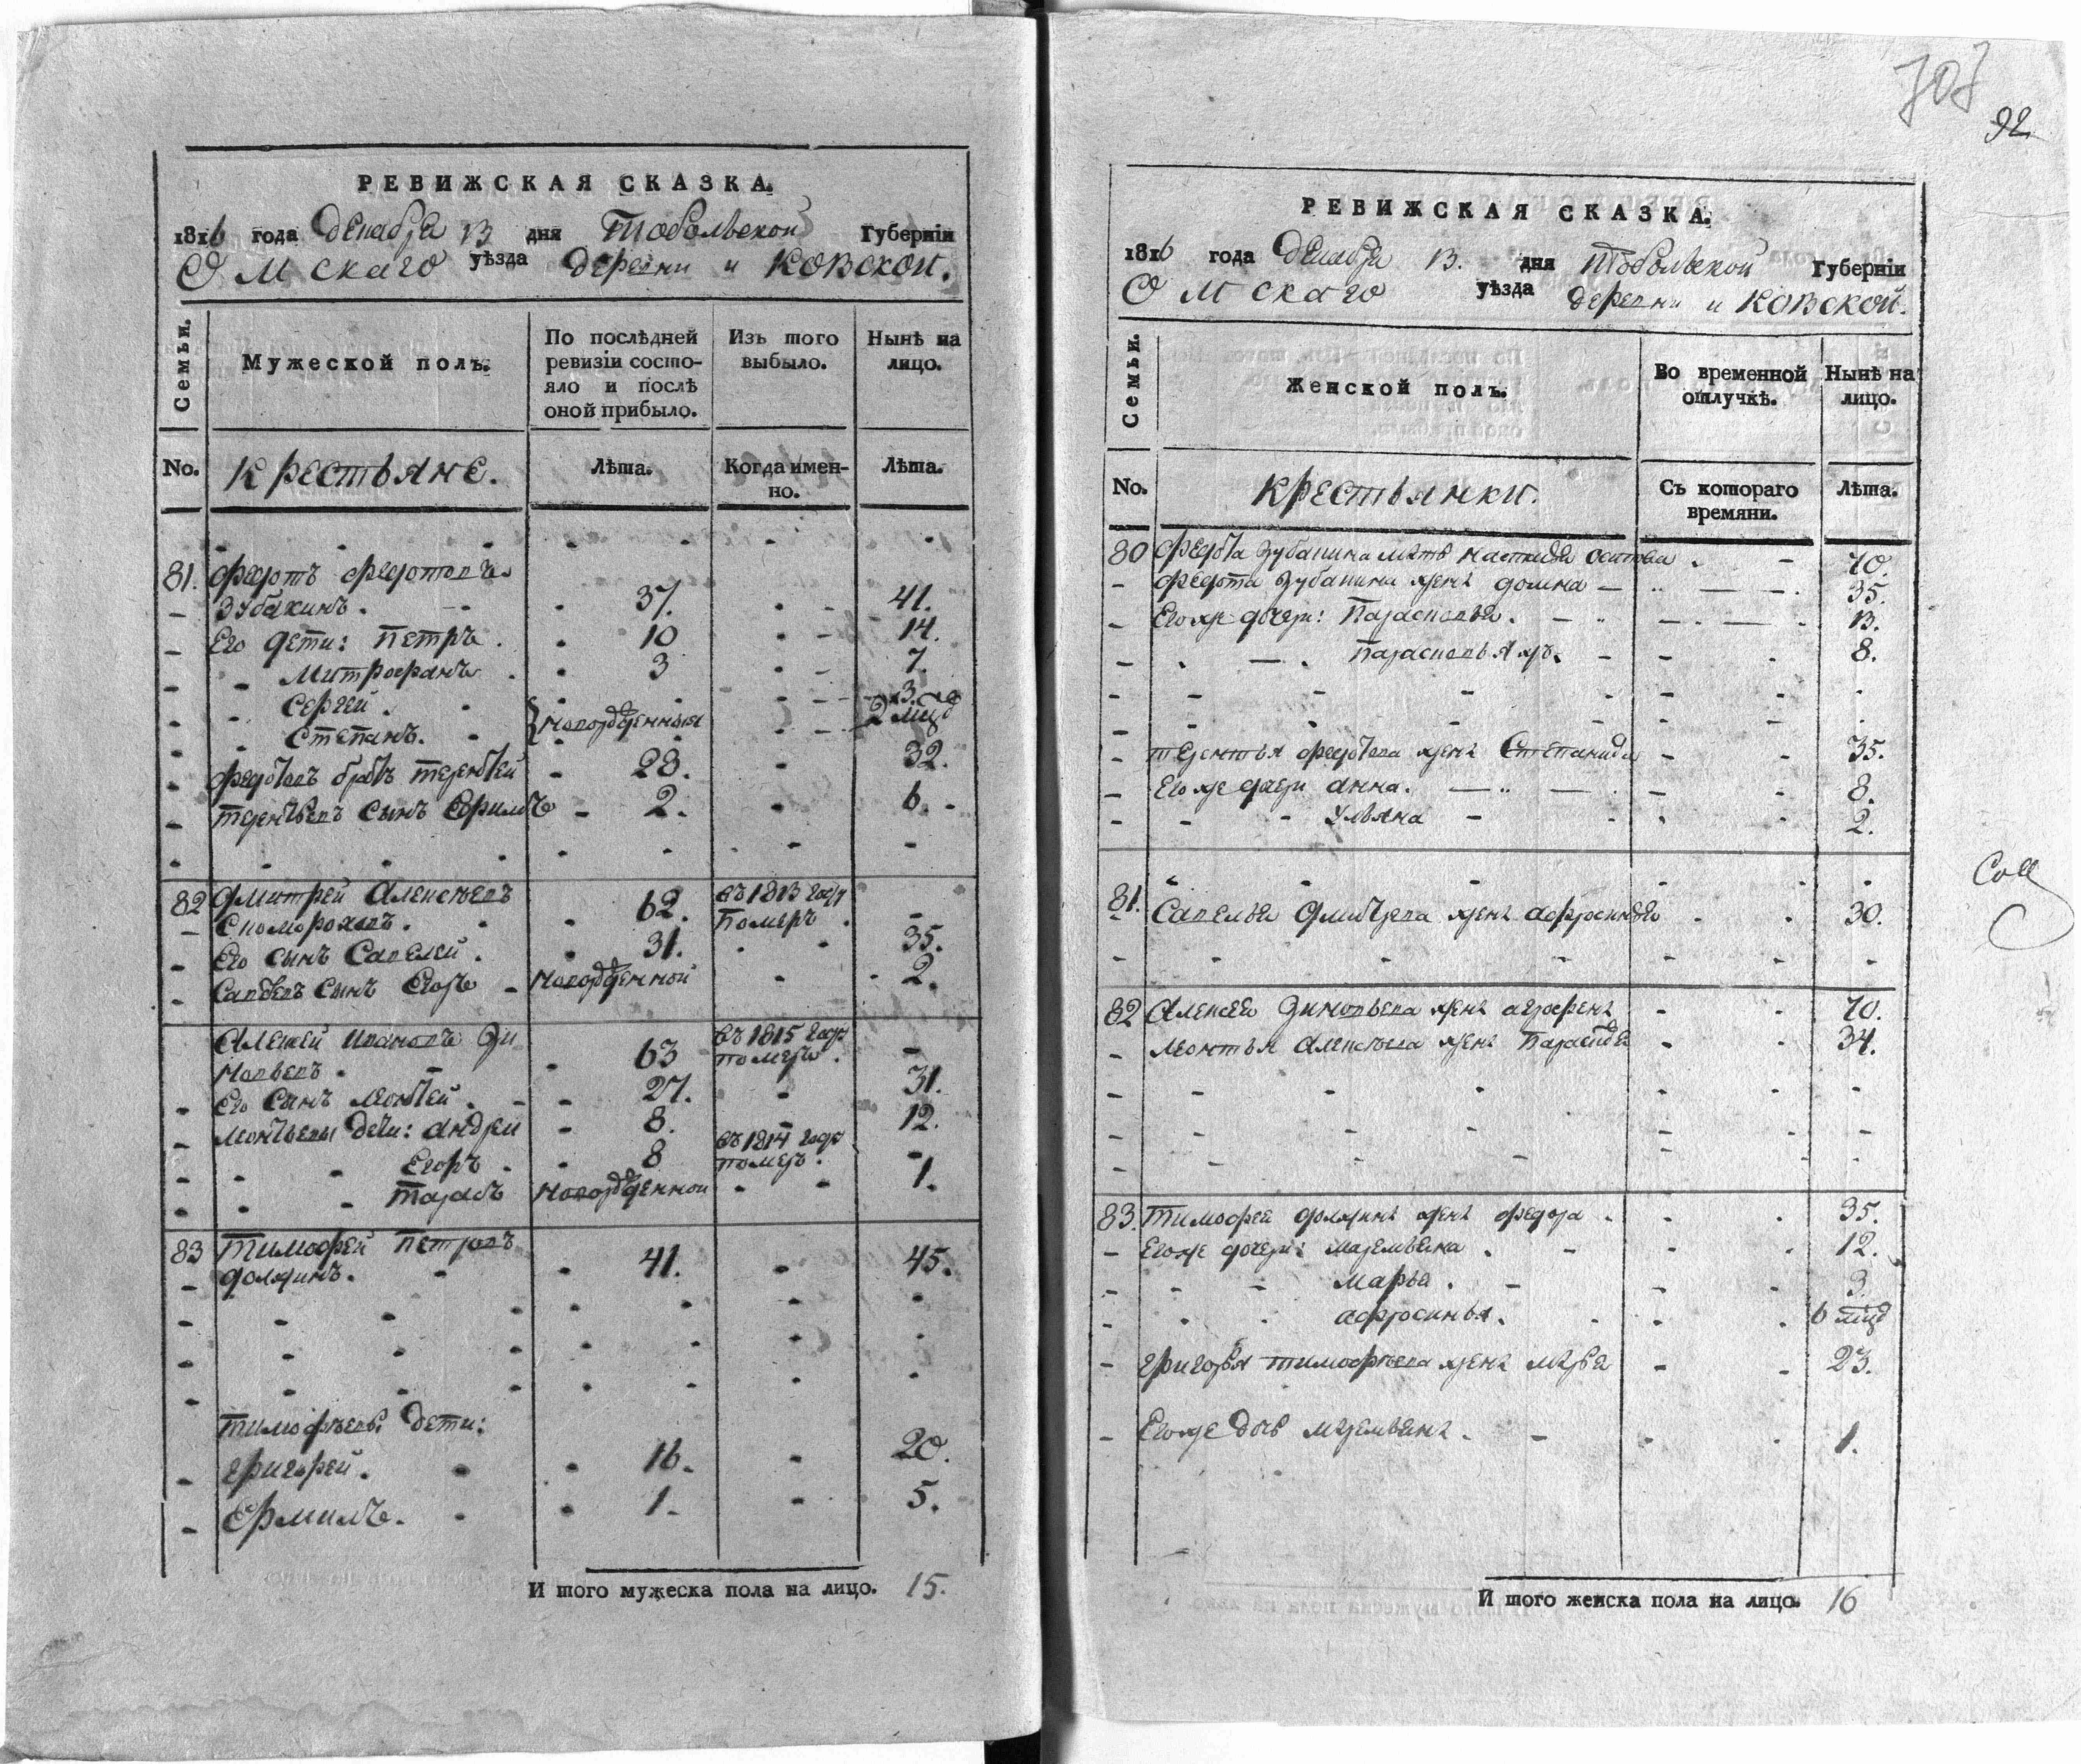 РЕВИЖСКАЯ СКАЗКА.
1816 года Декабря 13 дня Тобольской Губернїи
Омскаго уѣзда деревни иковской.
Семьи.
Мужеской полъ.
По послѣдней ревизїи состояло и послѣ оной прибыло.
Изъ того выбыло.
Нынѣ на лицо.
No. крестьяне. Лѣта. Когда именно. Лѣта.
81. федотъ федотовъ
Зубакинъ. 37. 41.
Его дети: Петръ. 10 14.
Митрофанъ 3 7.
Сергей. 3.
Степанъ. новорожденныя 2 мцд
федотовъ братъ терентей 28. 32.
терентьевъ сынъ Ефимъ 2. 6.
82 дмитрей Алексѣевъ
Скоморохов. 62. въ 1813 году Померъ.
Его сынъ Савелей. 31. 35.
сынъ Егоръ новорожденной 2.
Алексей Ивановъ Зи
новьевъ. 63 въ 1815 году померъ.
Его Сынъ леонтей. 27. 31.
леонтьевы дети: андреи 8. 12.
Егоръ. 8 въ 1814 году померъ.
тарасъ новорожденнои 1.
83 Тимофей Петровъ
должинъ. 41. 45.
тимофѣевы дети:
григорей. 16. 20.
Ермилъ. 1. 5.
И того мужеска пола на лицо. 15.
707
92
РЕВИЖСКАЯ СКАЗКА.
1816 года Декабря 13. дня тобольской Губернїи
Омскаго уѣзда деревни иковской.
Семьи.
Женской полъ.
Во временной отлучкѣ.
Нынѣ на лицо.
No. крестьянки. Съ котораго времяни. Лѣта.
80 федота Зубакина мать 70.
федота Зубакина жена домна 35.
Его же дочери: Парасковья. 13.
Парасковья жъ. 8.
терентья федотова жена Степанида 35.
Его же дочери анна. 8.
Ульяна 2.
81. Савелья дмитрева жена афросинья 30.
82 Алексея Зиновьева жена агрофена 70.
леонтья Алексѣева жена 34.
83. Тимофея должина жена федора 35.
Его же дочери: маремьяна. 12.
Марья. 3.
афросинья. 6 мцд
григорья тимофѣева жена марья 23.
Его же дочь маремьяна. 1.
И того женска пола на лицо. 16